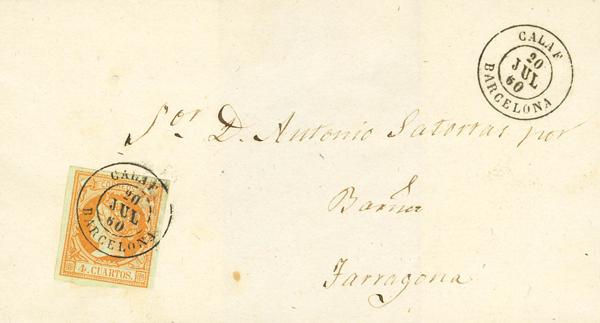 CALAF
20
JUL
60
BARCELONA
Sor. D. Antonio Satorras por
Tarragona
CALAF
20
JUL
60
BARCELONA
CORREOS
4. CUARTOS.